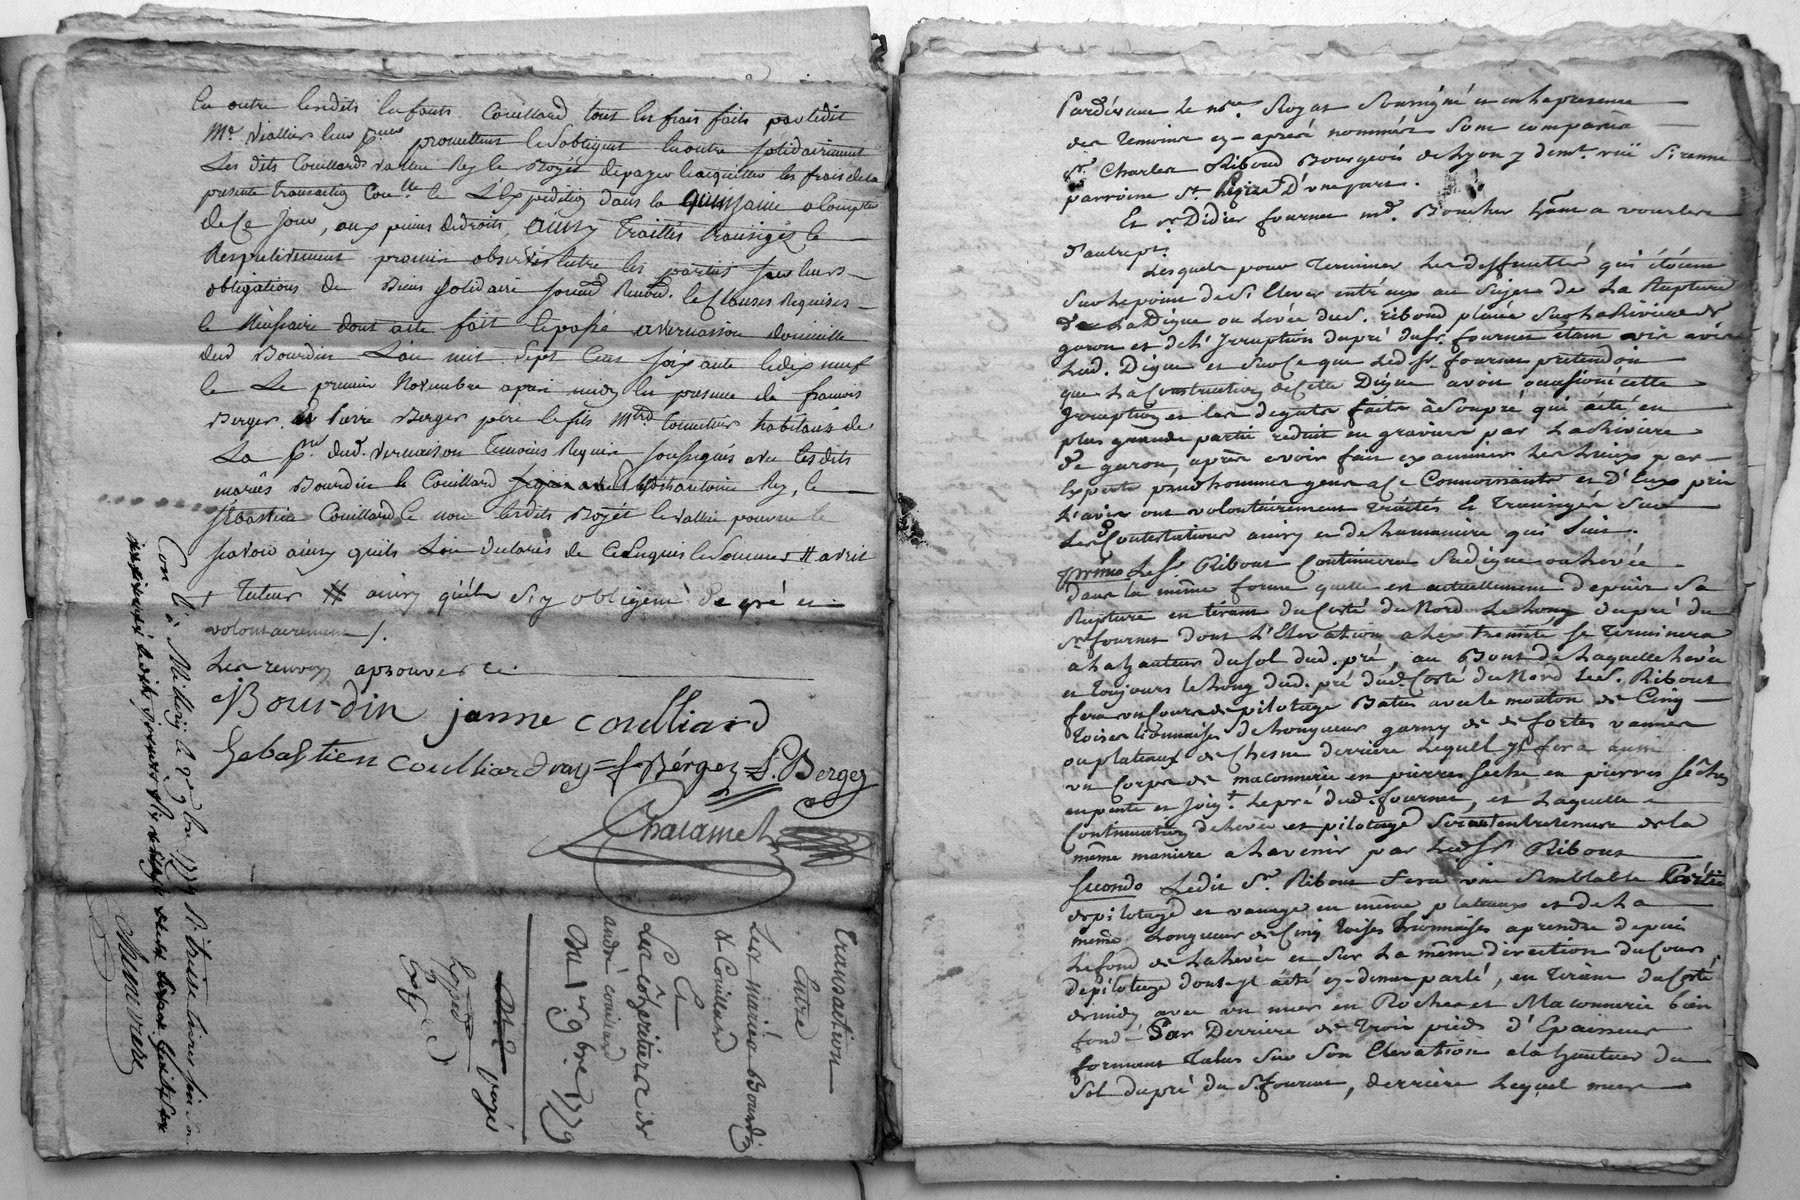 En outre lesdits Enfants Couillard tout les frais faits par ledit
Me. Viallier leur promettent et s'obligent en outre solidairement
Les dits Couillard vallin Rey et Bozet de payer et acquitter les frais de la
presente transaction Con.lle et L'Expedition dans la quinzaine a Compter
de Ce jour, aux peines de droits, ainsy Traittés transigés et
Respectivement promis observer entre les parties sous leurs
obligations de Biens solidaire soumd. Renond. et Clauses Requises
et Necessaire dont acte fait et passé a vernaison domicille
dud Bourdin L'an mil Sept Cens soixante et dix neuf
et Le premier Novembre apres midy En presence de francois
Berger et pierre Berger pere et fils habitans de
La p.sse dud. vernaison Temoins Requis soussignés avec lesdits
mariés Bourdin et Couillard Rey, et
sébastien Couillard et non lesdits Bozet et vallin pour ne le
scavoir ainsy quils L'on declarés de Ce Enquis et Sommés # avril
+ tuteur # ainsy quils s'y obligent de gré et
volontairement /.
Les renvoy aprouvés et.
Bourdin janne coulliard
Sebastien coulliard rey = f Bérger = P. Berger
Chalamel
Con lé à Millery le 9bre 1779
Munviere
Transaction
Entre
Les mariés Bourdin
& Couillard
Et
Les cohéritiers de
andré couillard
Du 1er 9bre 1779
Expedié
Pardevant Le nore. Royal Soussigné et en la presence
des temoins cy-apres nommés Sont comparus
Sr. Charles Riboud Bourgeois de Lyon y demt. ruë Sirenne
parroisse St. Pierre D'une part.
Et Sr. Didier fournet md. Boucher a vourles
d'autre pt.
Lesquels pour terminer Les difficultés qui étoient
Sur Le point de S'Elever entr'eux au Sujet de La Rupture
de La Digue ou Levée du S. riboud placée Sur La Riviere de
garon et de L'Jrruption du pré du Sr. fournet étant vis avis
Lad. Digue et Sur Ce que Led. Sr. fournet pretendoit
que La Construction de Cette Digue avoit occasionné cette
Jrruption et les degats faits à Son pré qui a été en
plus grande partie reduit en graviers par La Riviere
de garon, après avoir fait examiner Les Lieux par
Experts prud'hommes gens a Ce Connoissants et D'Eux pris
L'avis ont volontairement traités Et Transigés Sur
Les Contestations ainsy et de La maniere qui Suit.
primo Le Sr. Ribout Continuera Sa digue ou Levée
dans la même forme quelle est actuellement depuis Sa
Rupture en tirant du Costé du Nord Le Long du pré du
Sr. fournet dont L'Elevation a L'extremité Se terminera
a La hauteur du Sol dud. pré, au Bout de Laquelle Levée
et toujours le Long dud. pré dud. Costé du Nord Led. S. Ribout
fera un Cours de pilotage Batus avec le mouton de Cinq
toises Lionnaises de Longueur garny de de fortes vannes
ou plateaux de Chesne derriere Lequel Jl fera aussi
un Corps de maconnerie en pierres Seche en pierres Séches
en pente et joigt. Le pré dud. fournet, et Laquelle
Continuation de Levée et pilotage Seront entretenus de la
même maniere a L'avenir par Led Sr Ribout
Secondo Ledit Sr. Ribout fera une Semblable Partie
de pilotage et vannage en même plateaux et de La
même Longueur de Cinq toises Lionnaises a prendre depuis
Le fond de La Levée et Sur La même direction du Cours
de pilotage dont Jl a été cy-devant parlé, en tirant du Costé
de midy avec un mur en Roches et Maconnerie bien
fondé Par Derriere de trois pieds d'Epaisseur
formant talus Sur Son Elevation a la hauteur du
Sol du pré du Sr. fournet, derriere Lequel mur